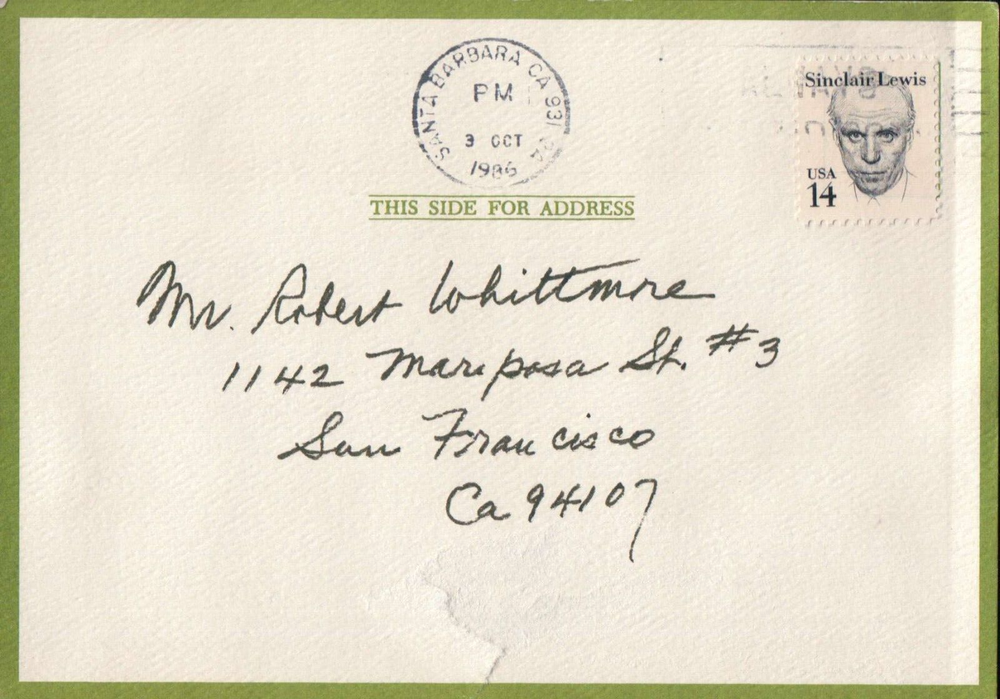 SANTA BARBARA CA 931
PM
3 OCT
1986
Sinclair Lewis
USA
14
THIS SIDE FOR ADDRESS
Mr. Robert Whittmore
1142 Mariposa St. #3
San Francisco
Ca 94107